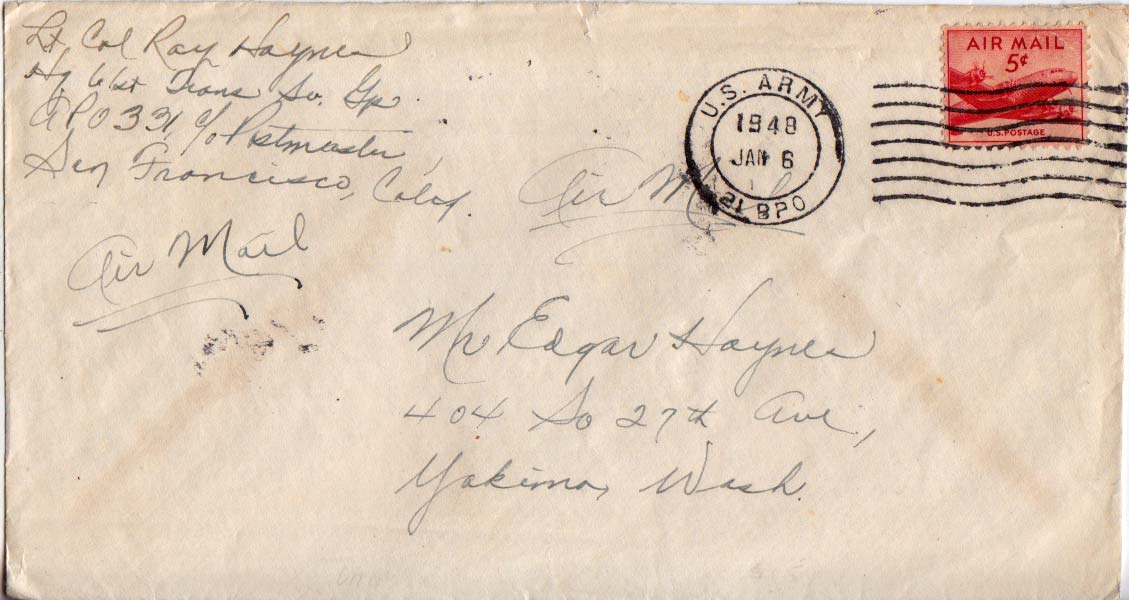 Lt. Col Ray Haynes
Hq 61st Trans Sv. Gp.
APO 331, c/o Postmaster,
San Francisco, Calif.
Air Mail
Air Mail
U.S. ARMY
1948
JAN 6
21 BPO
AIR MAIL
5¢
U.S. POSTAGE
Mr Edgar Haynes
404 So 27th Ave.,
Yakima, Wash.